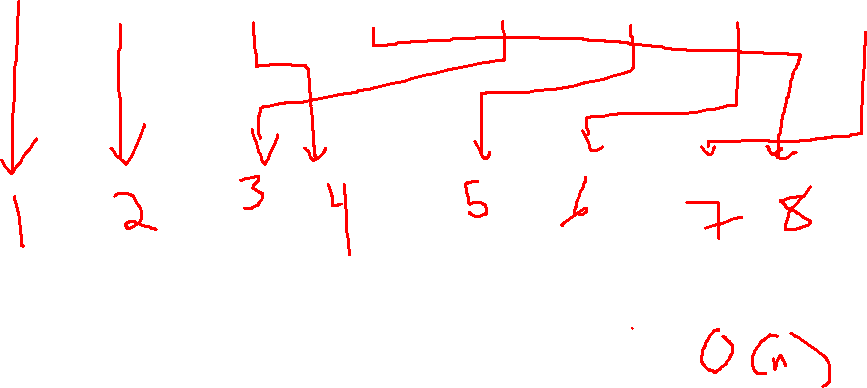 1 2 3 4 5 6 7 8
O(n)